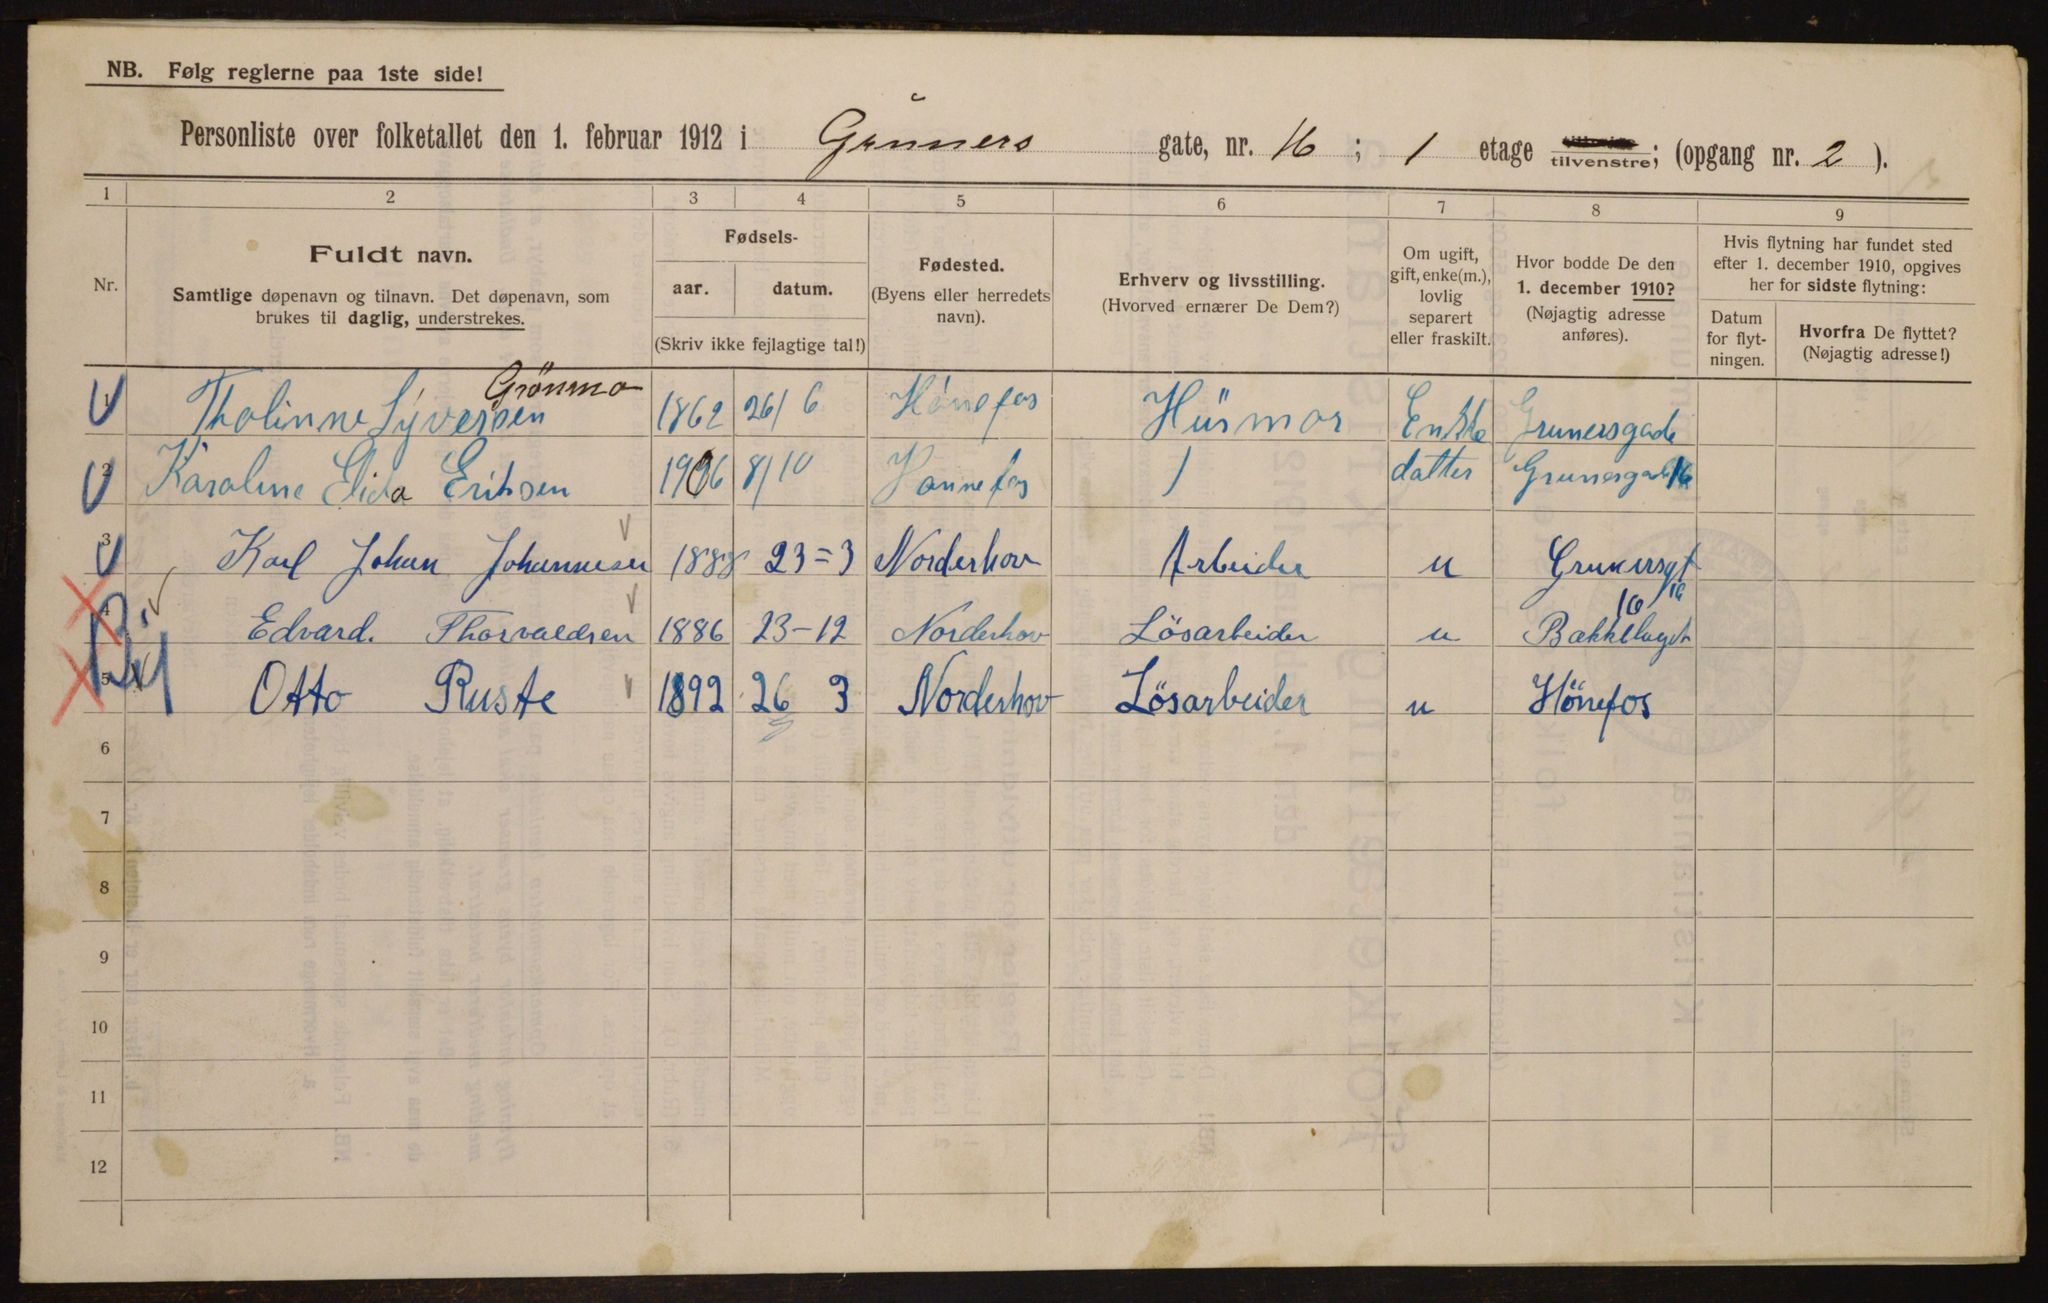 NB. Følg reglerne paa 1ste side!
Personliste over folketallet den 1. februar 1912 i Grüners gate, nr. 16 ; 1 etage tilvenstre; (opgang nr. 2 ).
1 2 3 4 5 6 7 8 9
Nr.
Fuldt navn.
Samtlige døpenavn og tilnavn. Det døpenavn, som
brukes til daglig, understrekes.
Fødsels-
aar. datum.
(Skriv ikke fejlagtige tal!)
Fødested.
(Byens eller herredets
navn).
Erhverv og livsstilling.
(Hvorved ernærer De Dem?)
Om ugift,
gift, enke(m.),
lovlig
separert
eller fraskilt.
Hvor bodde De den
1. december 1910?
(Nøjagtig adresse
anføres).
Hvis flytning har fundet sted
efter 1. december 1910, opgives
her for sidste flytning:
Datum
for flyt-
ningen.
Hvorfra De flyttet?
(Nøjagtig adresse!)
Grönmo
1 Tholinne Syversen 1862 26/6 Hönefos Hüsmor Enkke Grunersgade
2 Karoline Elida Eriksen 1906 8/10 Hönnefos / datter Grunersgade 16
3 Karl Johan Johannesen 1888 23=3 Norderhov Arbeider u Grunersgt
16
4 Edvard. Thorvaldsen 1886 23-12 Norderhov Lösarbeider u Bækkelaget
5 Otto Ruste 1892 26 3 Norderhov Lösarbeider u Hönefos
6
7
8
9
10
11
12